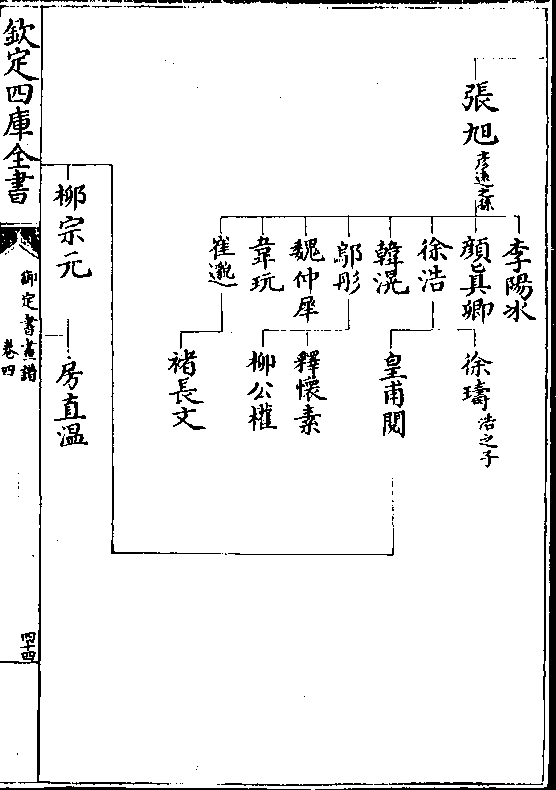 張旭 彦遠之孫
李陽冰
顔真卿
徐浩
韓滉
鄔彤
魏仲犀
韋玩
崔邈
徐璹 浩之子
皇甫閱
釋懷素
柳公權
褚長文
柳宗元
房直溫
欽定四庫全書
御定書畫譜
卷四
四十四